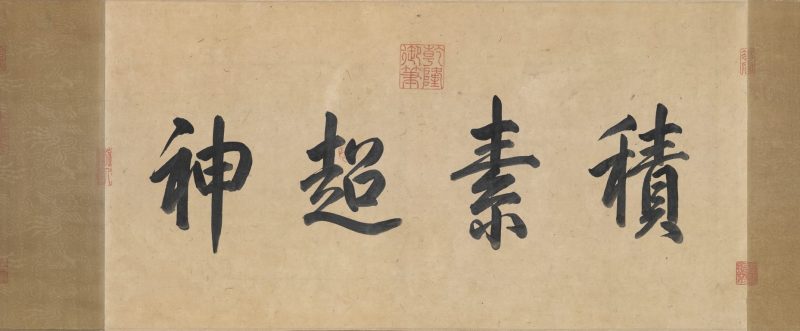 積素超神
乾隆御筆